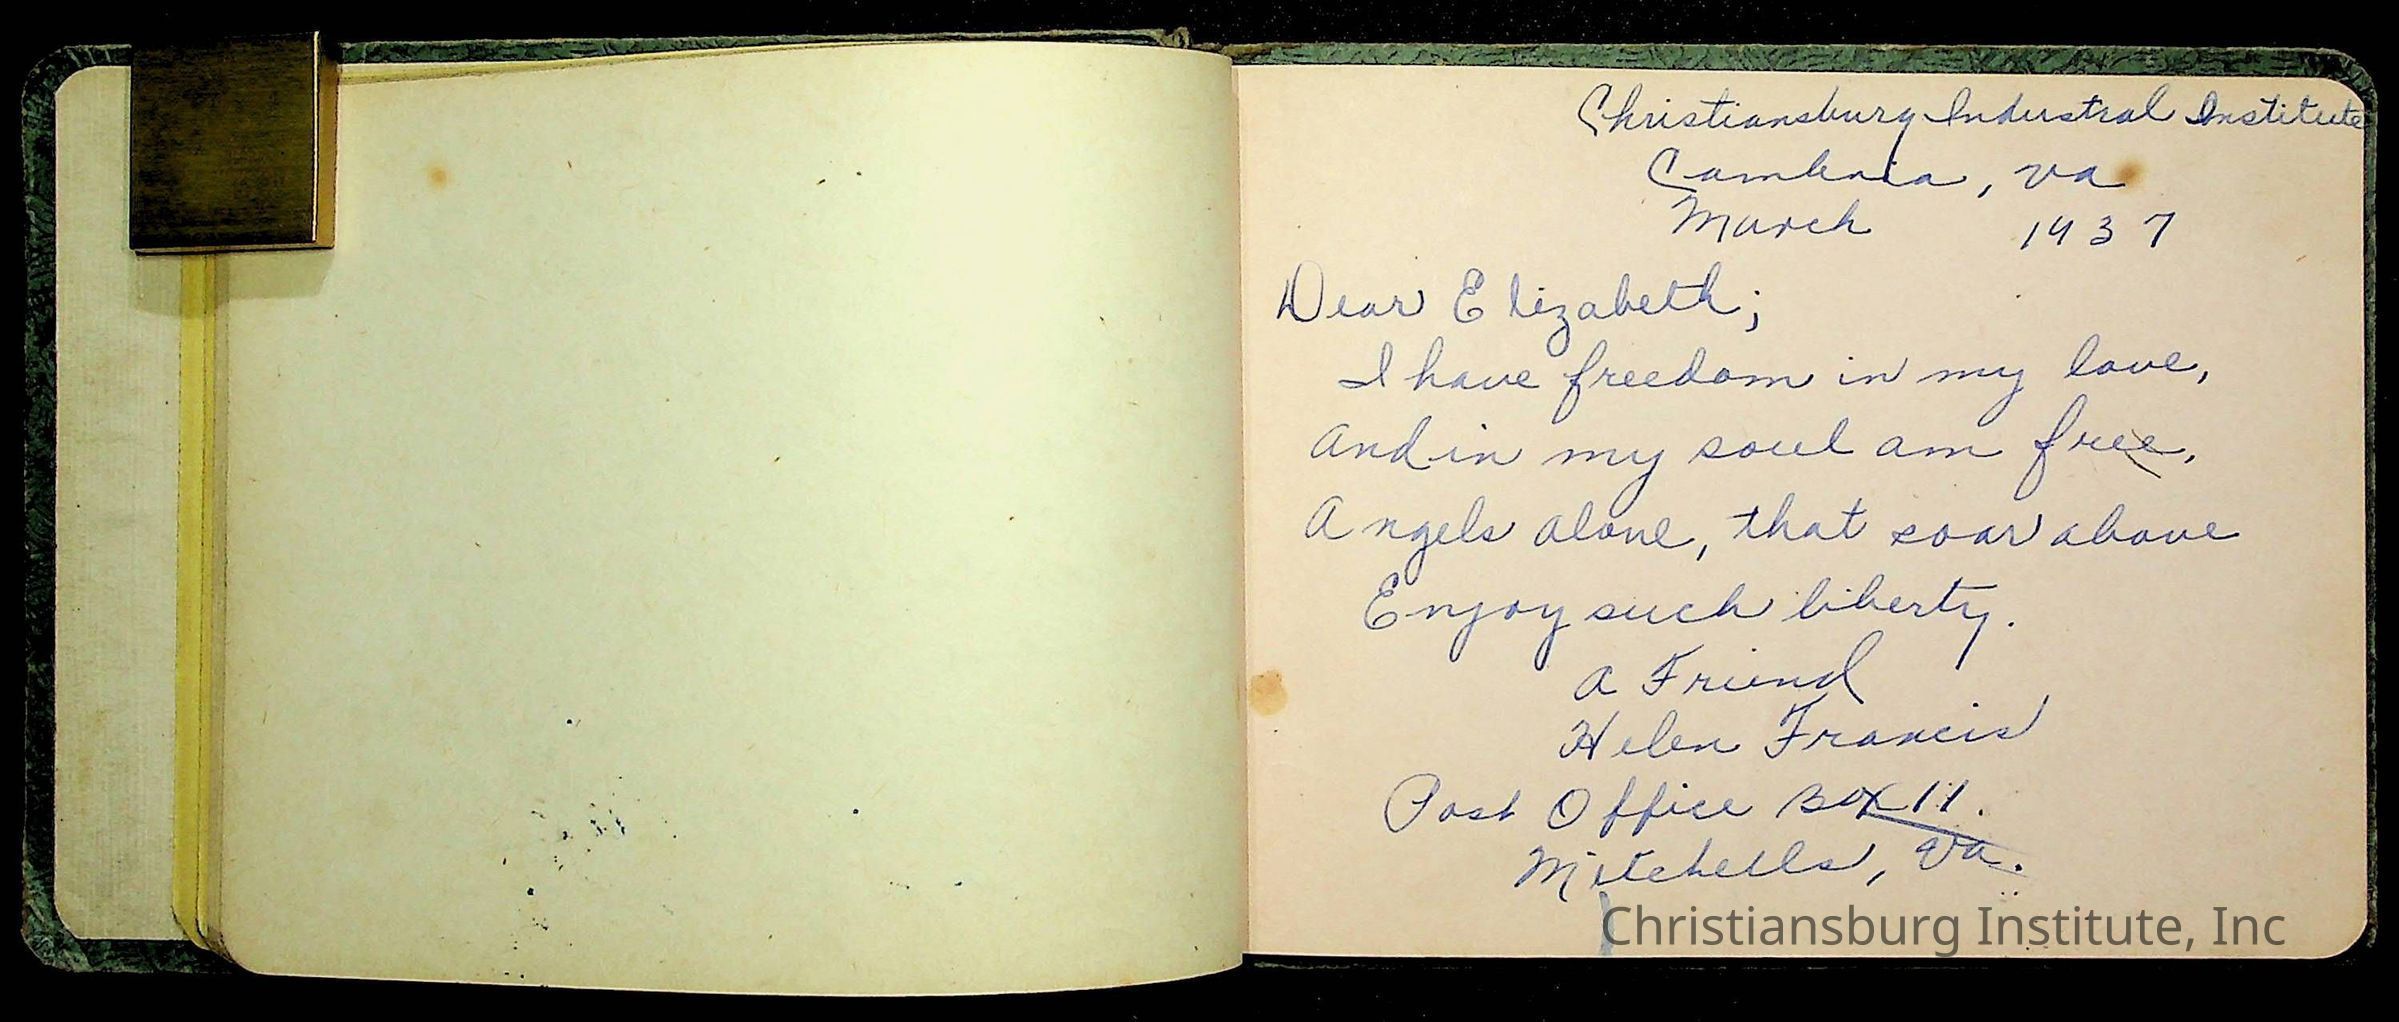 Christiansburg Industral Institute
Cambria, Va
March 1937
Dear Elizabeth;
I have freedom in my love,
And in my soul am free,
Angels alone, that soar above
Enjoy such liberty.
A Friend
Helen Francis
Post Office Box 11.
Mitchells, Va.
Christiansburg Institute, Inc